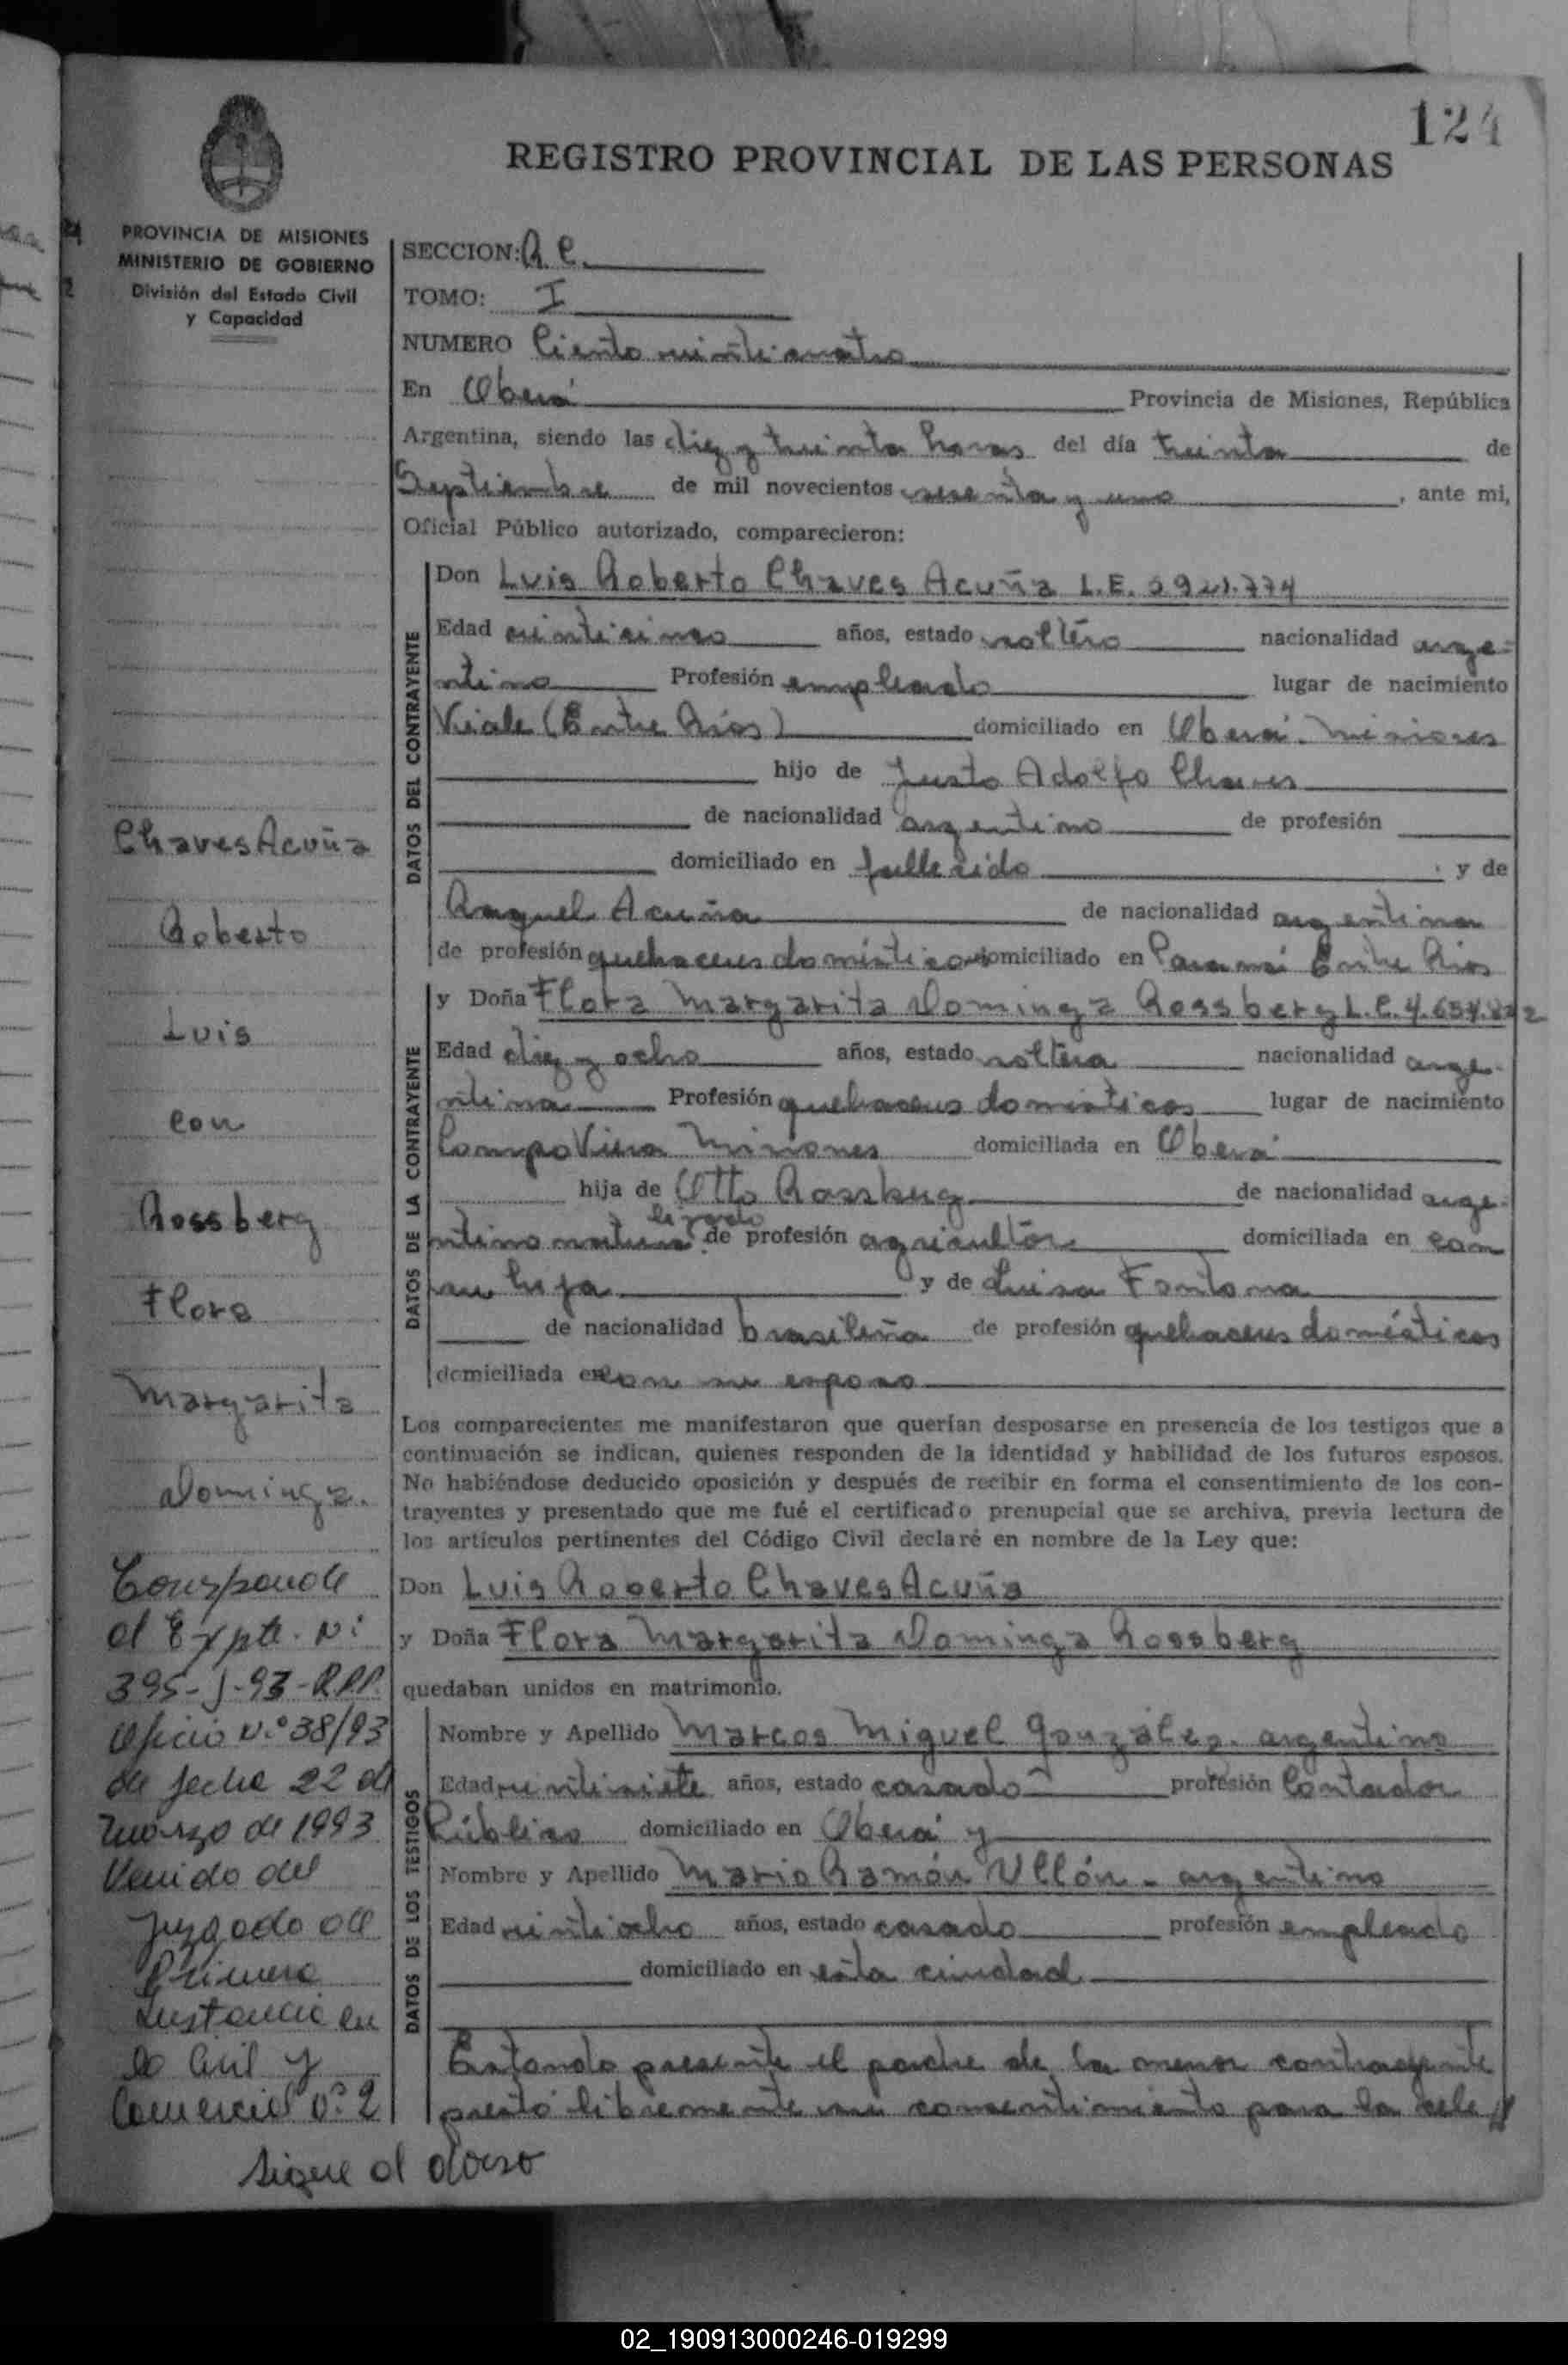 124
REGISTRO PROVINCIAL DE LAS PERSONAS
PROVINCIA DE MISIONES
MINISTERIO DE GOBIERNO
División del Estado Civil
y Capacidad
SECCION: R. C.
TOMO: I
NUMERO Ciento veinticuatro
En Oberá Provincia de Misiones, República
Argentina, siendo las diez y treinta horas del día treinta de
Septiembre de mil novecientos sesenta y uno, ante mi,
Oficial Público autorizado, comparecieron:
DATOS DEL CONTRAYENTE
Don Luis Roberto Chaves Acuña L.E.
Edad veinticinco años, estado soltero nacionalidad arge-
ntino Profesión empleado lugar de nacimiento
Viale (Entre Ríos) domiciliado en Oberá. Misiones
hijo de Justo Adolfo Chaves
de nacionalidad argentino de profesión
domiciliado en fallecido y de
Raquel Acuña de nacionalidad argentina
de profesión quehaceres domésticos domiciliado en Paraná Entre Ríos
DATOS DE LA CONTRAYENTE
y Doña Flora Margarita Dominga Rossberg L.C. 4.657.822
Edad diez y ocho años, estado soltera nacionalidad arge-
ntina Profesión quehaceres domésticos lugar de nacimiento
Campo Viera Misiones domiciliada en Oberá
hija de Otto Rossberg de nacionalidad arge-
lizado
ntino natura. de profesión agricultor domiciliada en con
su hija y de Luisa Fontana
de nacionalidad brasileña de profesión quehaceres domésticos
domiciliada en con su esposo
Los comparecientes me manifestaron que querían desposarse en presencia de los testigos que a
continuación se indican, quienes responden de la identidad y habilidad de los futuros esposos.
No habiéndose deducido oposición y después de recibir en forma el consentimiento de los con-
trayentes y presentado que me fué el certificado prenupcial que se archiva, previa lectura de
los artículos pertinentes del Código Civil declaré en nombre de la Ley que:
Don Luis Roberto Chaves Acuña
y Doña Flora Margarita Dominga Rossberg
quedaban unidos en matrimonio.
DATOS DE LOS TESTIGOS
Nombre y Apellido Marcos Miguel González. argentino
Edad veintisiete años, estado casado profesión Contador
Público domiciliado en Oberá y
Nombre y Apellido Mario Ramón Ullón - argentino
Edad veintiocho años, estado casado profesión empleado
domiciliado en esta ciudad
Estando presente el padre de la menor contrayente
prestó libremente su consentimiento para la cele
Chaves Acuña
Roberto
Luis
con
Rossberg
Flora
Margarita
Dominga.
Corresponde
al Expte. Nº
395-J-93-R.P.P.
Oficio Nº 38/93
de fecha 22 de
Marzo de 1993
Venido del
Juzgado de
Primera
Instancia en
lo Civil y
Comercial Nº 2
Sigue al dorso
02_190913000246-019299